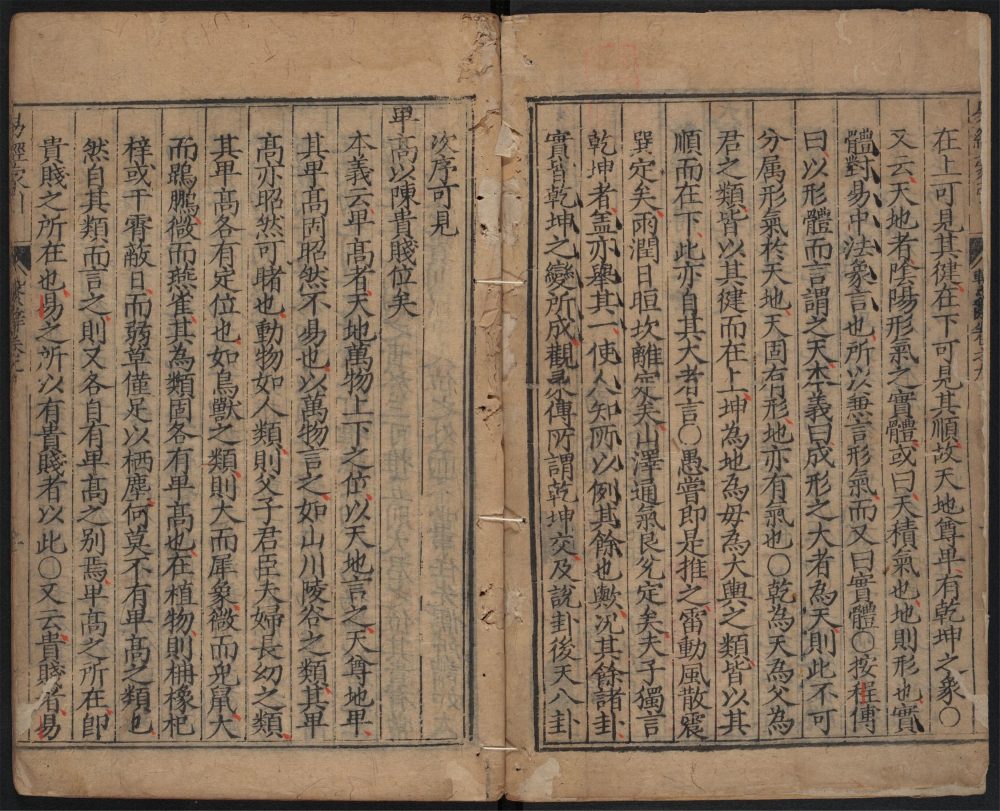 在上可見其健在下可見其順故天地尊卑有乾坤之象○
又云天地者陰陽形氣之實體或曰天積氣也地則形也實
體對易中法象言也所以兼言形氣而又曰實體○按程傳
曰以形體而言謂之天本義曰成形之大者為天則此不可
分属形氣於天地天固有形地亦有氣也○乾為天為父為
君之類皆以其健而在上坤為地為母為大輿之類皆以其
順而在下此亦自其大者言○愚嘗即是推之雷動風散震
巽定矣雨潤日晅坎離定矣山澤通氣艮兌定矣夫子獨言
乾坤者盖亦舉其一使人知所以例其餘也歟况其餘諸卦
實皆乾坤之變所成觀彖傳所謂乾坤交及說卦後天八卦
次序可見
卑高以陳貴賤位矣
本義云卑髙者天地萬物上下之位以天地言之天尊地卑
其卑髙固昭然不易也以萬物言之如山川陵谷之類其卑
髙亦昭然可睹也動物如人類則父子君臣夫婦長幼之類
其卑髙各有定位也如鳥獸之類則大而犀象微而兕鼠大
而鵾鵬微而燕雀其為類固各有卑髙也在植物則楠橡杞
梓或干霄蔽日而弱草僅足以栖塵何莫不有卑髙之類也
然自其類而言之則又各自有卑髙之别焉卑髙之所在即
貴賤之所在也易之所以有貴賤者以此○又云貴賤者易
易經蒙引